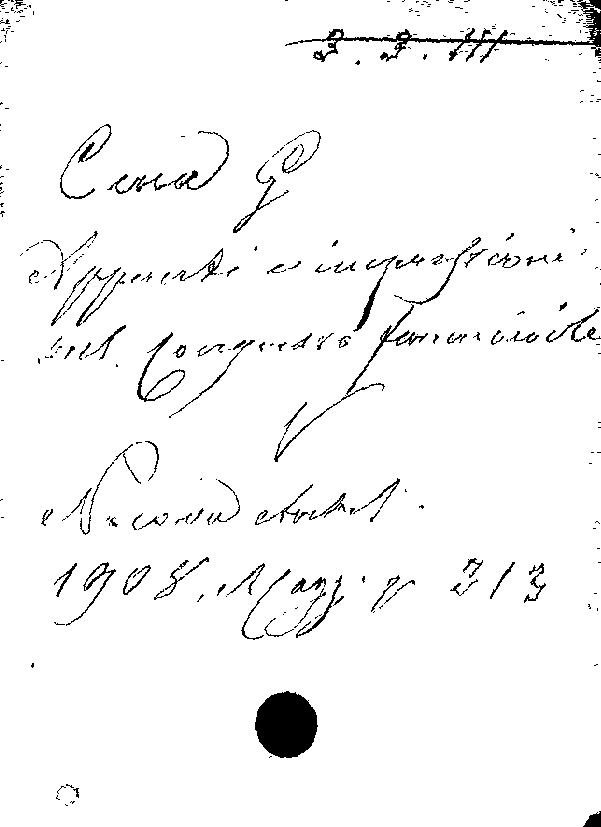 3. 3. III
Cena G
Appunti e impressioni
sul Congresso femminile
Nuova Antol.
1908, Magg. p 213